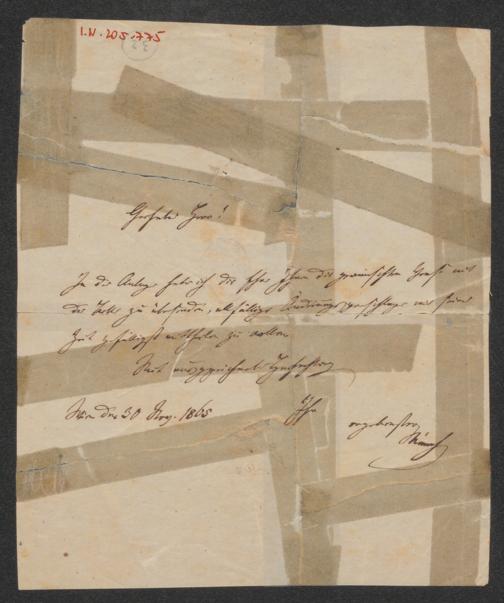 I.N. 205.775
33
Geehrter Herr!
In der Anlage habe ich die Ehre Ihnen die gewünschten mit
der Bitte zu übersenden, allfällige mir seiner
Zeit gefälligst mittheilen zu wollen
Mit ausgezeichneter Hochachtung
Wien den 30 Nov. 1865
Ihr
ergebenster